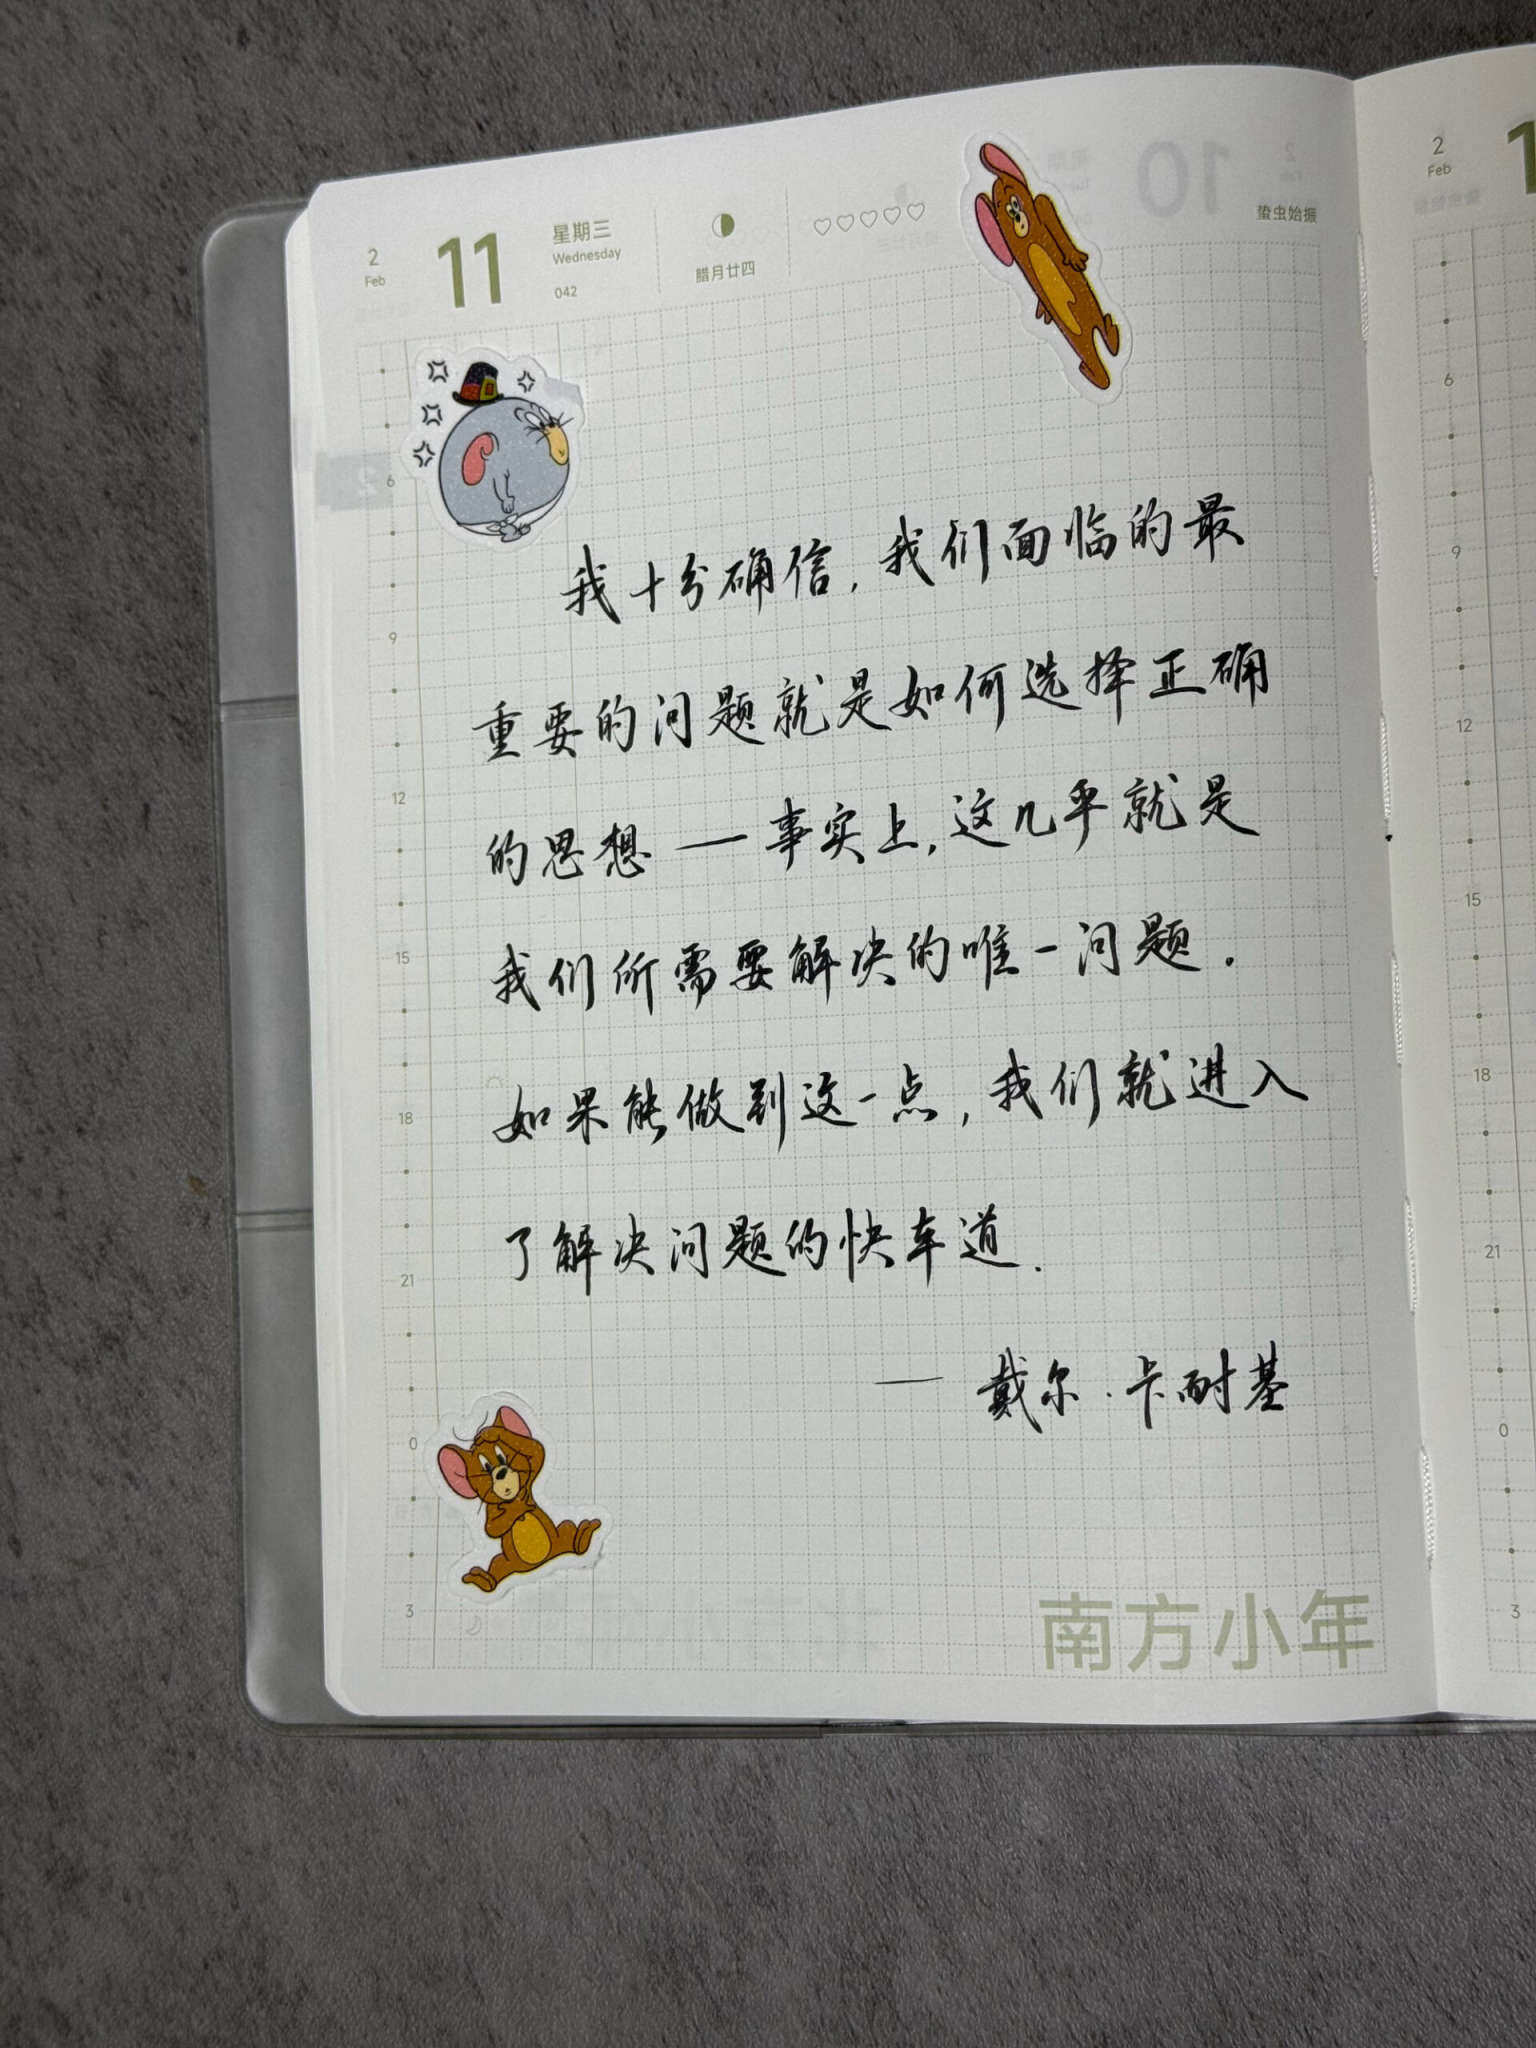 2
Feb
11
星期三
Wednesday
042
腊月廿四
蛰虫始振
我十分确信，我们面临的最
重要的问题就是如何选择正确
的思想——事实上，这几乎就是
我们所需要解决的唯一问题.
如果能做到这一点，我们就进入
了解决问题的快车道.
—— 戴尔·卡耐基
6
9
12
15
18
21
0
3
南方小年
2
Feb
6
9
12
15
18
21
0
3